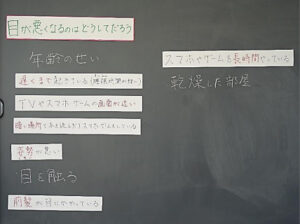 目が悪くなるのはどうしてだろう
年齢のせい
遅くまで起きている
TVやスマホゲームの画面が近い
暗い場所で本を読んだりスマホゲームをしている
姿勢が悪い
目を触る
前髪が目にかかっている
スマホやゲームを長時間やっている
乾燥した部屋